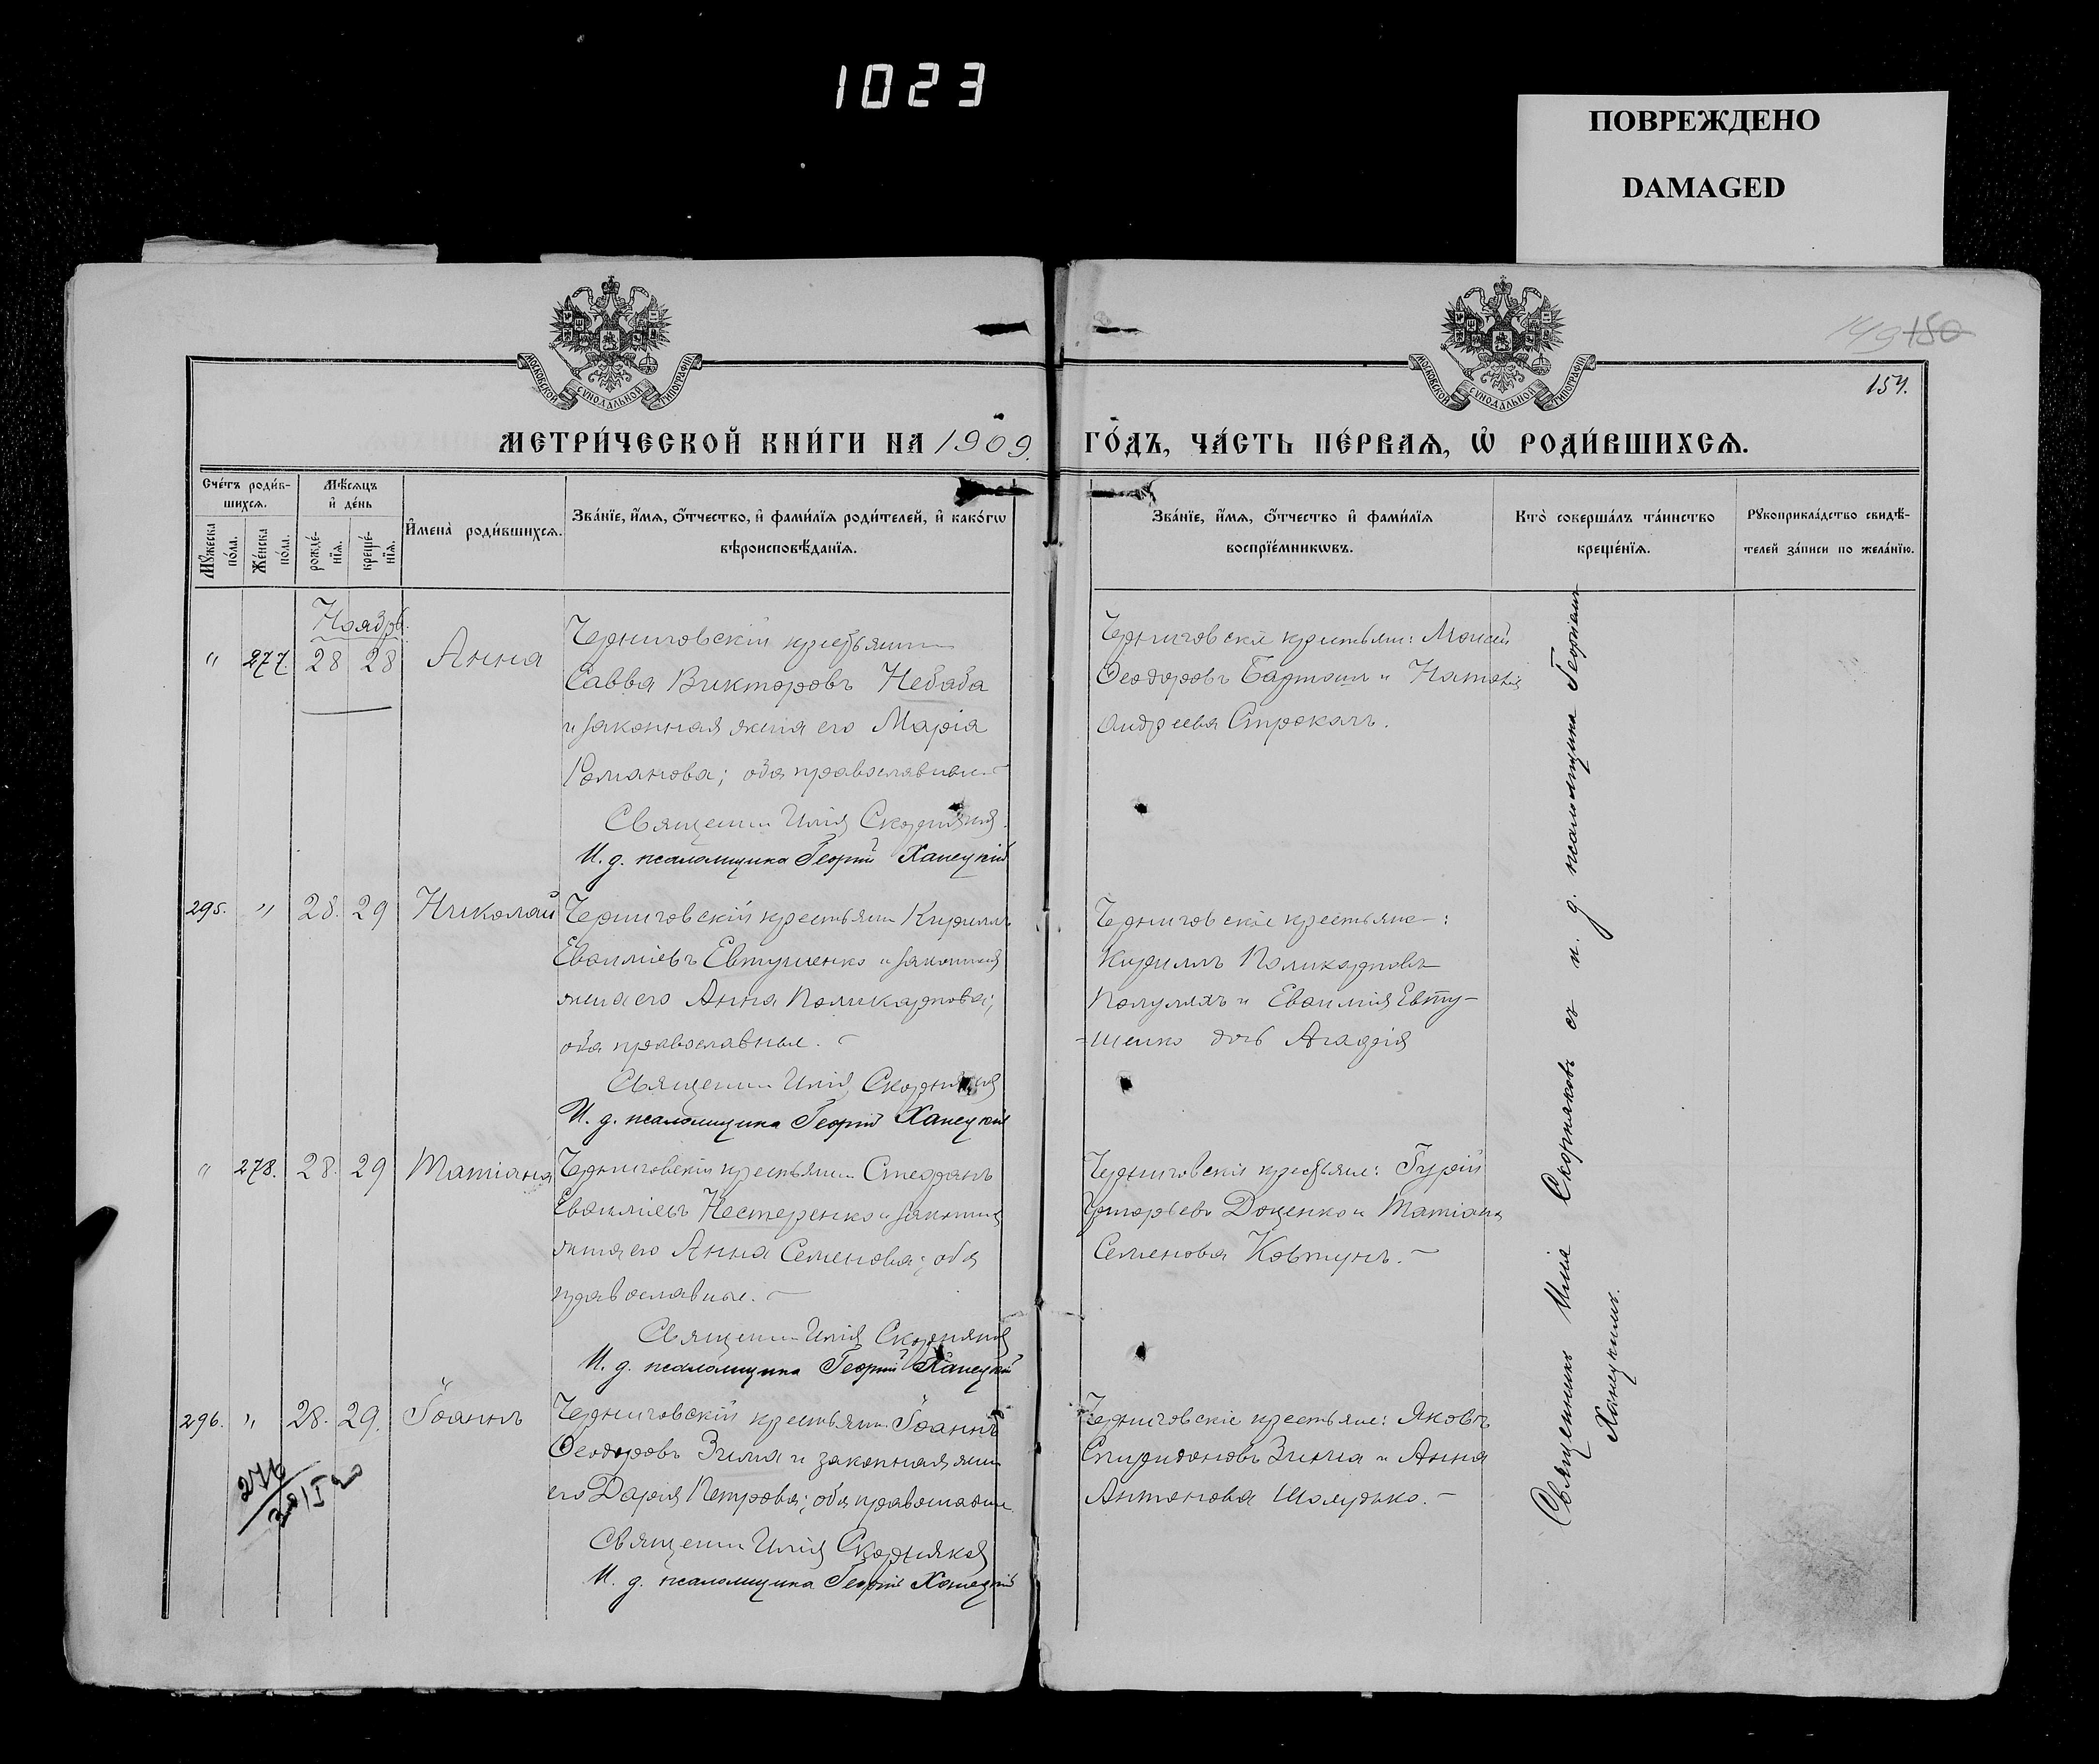 1023
ПОВРЕЖДЕНО
DAMAGED
МОСКОВСКОЙ СѴНОДАЛЬНОЙ ТИПОГРАФІИ
МОСКОВСКОЙ СѴНОДАЛЬНОЙ ТИПОГРАФІИ
149 150
154.
МЕТРИ́ЧЕСКОЙ КНИ́ГИ НА 1909.
ГО́ДЪ, ЧА́СТЬ ПЕ́РВАѦ, Ѡ҆ РОДИ́ВШИХСѦ.
Сче́тъ роди́в-
шихсѧ.
Мꙋ́жеска по́ла.
Же́нска по́ла.
Мѣ́сѧцъ
и҆ де́нь
рожде́-
нїѧ.
креще́-
нїѧ.
И҆мена̀ роди́вшихсѧ.
Зва́нїе, и҆́мѧ, ѻ҆́тчество, и҆ фами́лїѧ роди́телей, и҆ како́гѡ
вѣроисповѣ́данїѧ.
Зва́нїе, и҆́мѧ, ѻ҆́тчество и҆ фами́лїѧ
воспрїе́мникѡвъ.
Кто̀ соверша́лъ та́инство
креще́нїѧ.
Рꙋкоприкла́дство свидѣ́-
телей за́писи по жела́нїю.
Ноябрь.
" 277. 28 28 Анна
Черниговскій крестьянин
Савва Викторовъ Небаба
и законная жена его Марія
Романова; оба православные
Священник Илія Скорняков
И. д. псаломщика Георгій Ханецкій
Черниговскіе крестьяне: Моисей
Ѳеодоровъ Бартош и Наталія
Андреева Строкачъ.
295. " 28. 29 Николай
Черниговскій крестьянин Кириллъ
Евѳиміевъ Евтушенко и законная
жена его Анна Поликарпова;
оба православные.
Священник Илія Скорняков
И. д. псаломщика Георгій Ханецкій
Черниговскіе крестьяне:
Кириллъ Поликарповъ
Полуляхъ и Евѳимія Евту-
-шенко дочь Агафія
" 278. 28. 29 Татіана
Черниговскій крестьянин Стефанъ
Евѳиміевъ Нестеренко и законная
жена его Анна Семенова; оба
православные.
Священник Илія Скорняков
И. д. псаломщика Георгій Ханецкій
Черниговскіе крестьяне: Гурій
Григорьевъ Доценко и Татіана
Семенова Ковтунъ.
296. " 28. 29. Іоаннъ
Черниговскій крестьянин Іоаннъ
Ѳеодоровъ Зима и законная жена
его Дарія Петрова; оба православные
Священник Илія Скорняков
И. д. псаломщика Георгій Ханецкій
Черниговскіе крестьяне: Яковъ
Спиридоновъ Зима и Анна
Антонова Шолудько.
276
Священникъ Илія Скорняковъ съ и. д. псаломщика Георгіемъ
Ханецкимъ.